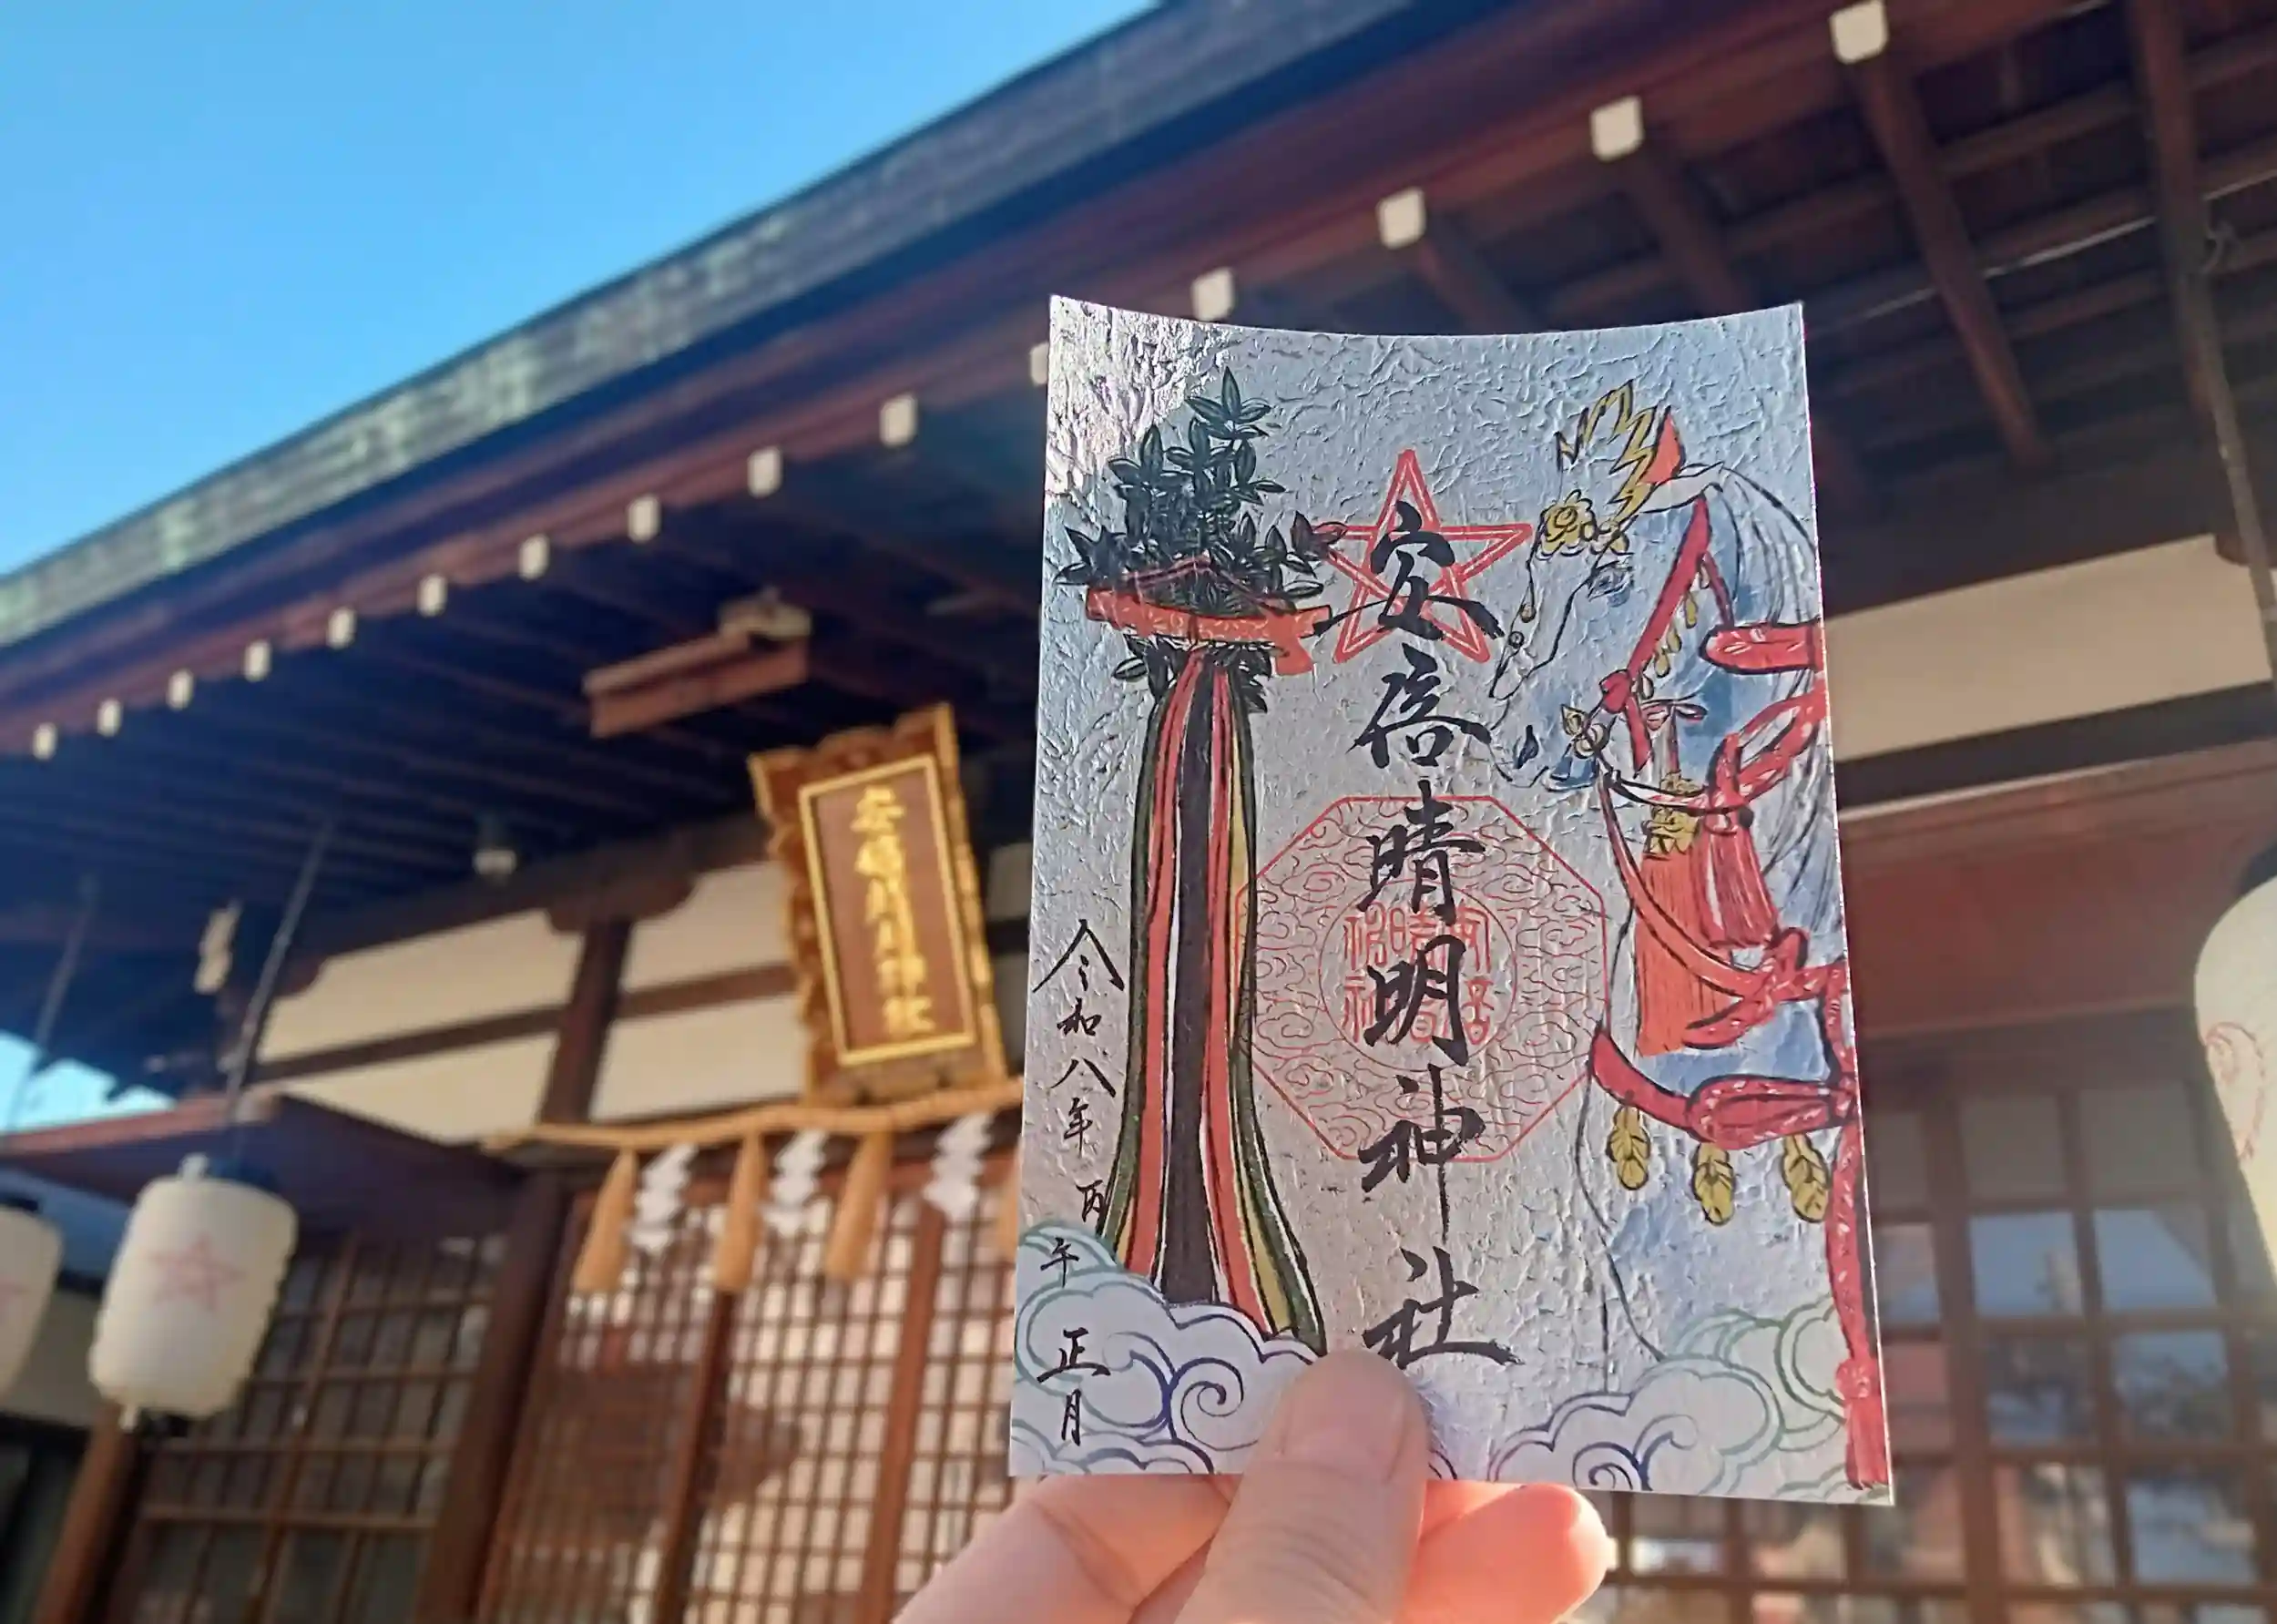 安倍晴明神社
令和八年丙午 正月
安倍晴明神社